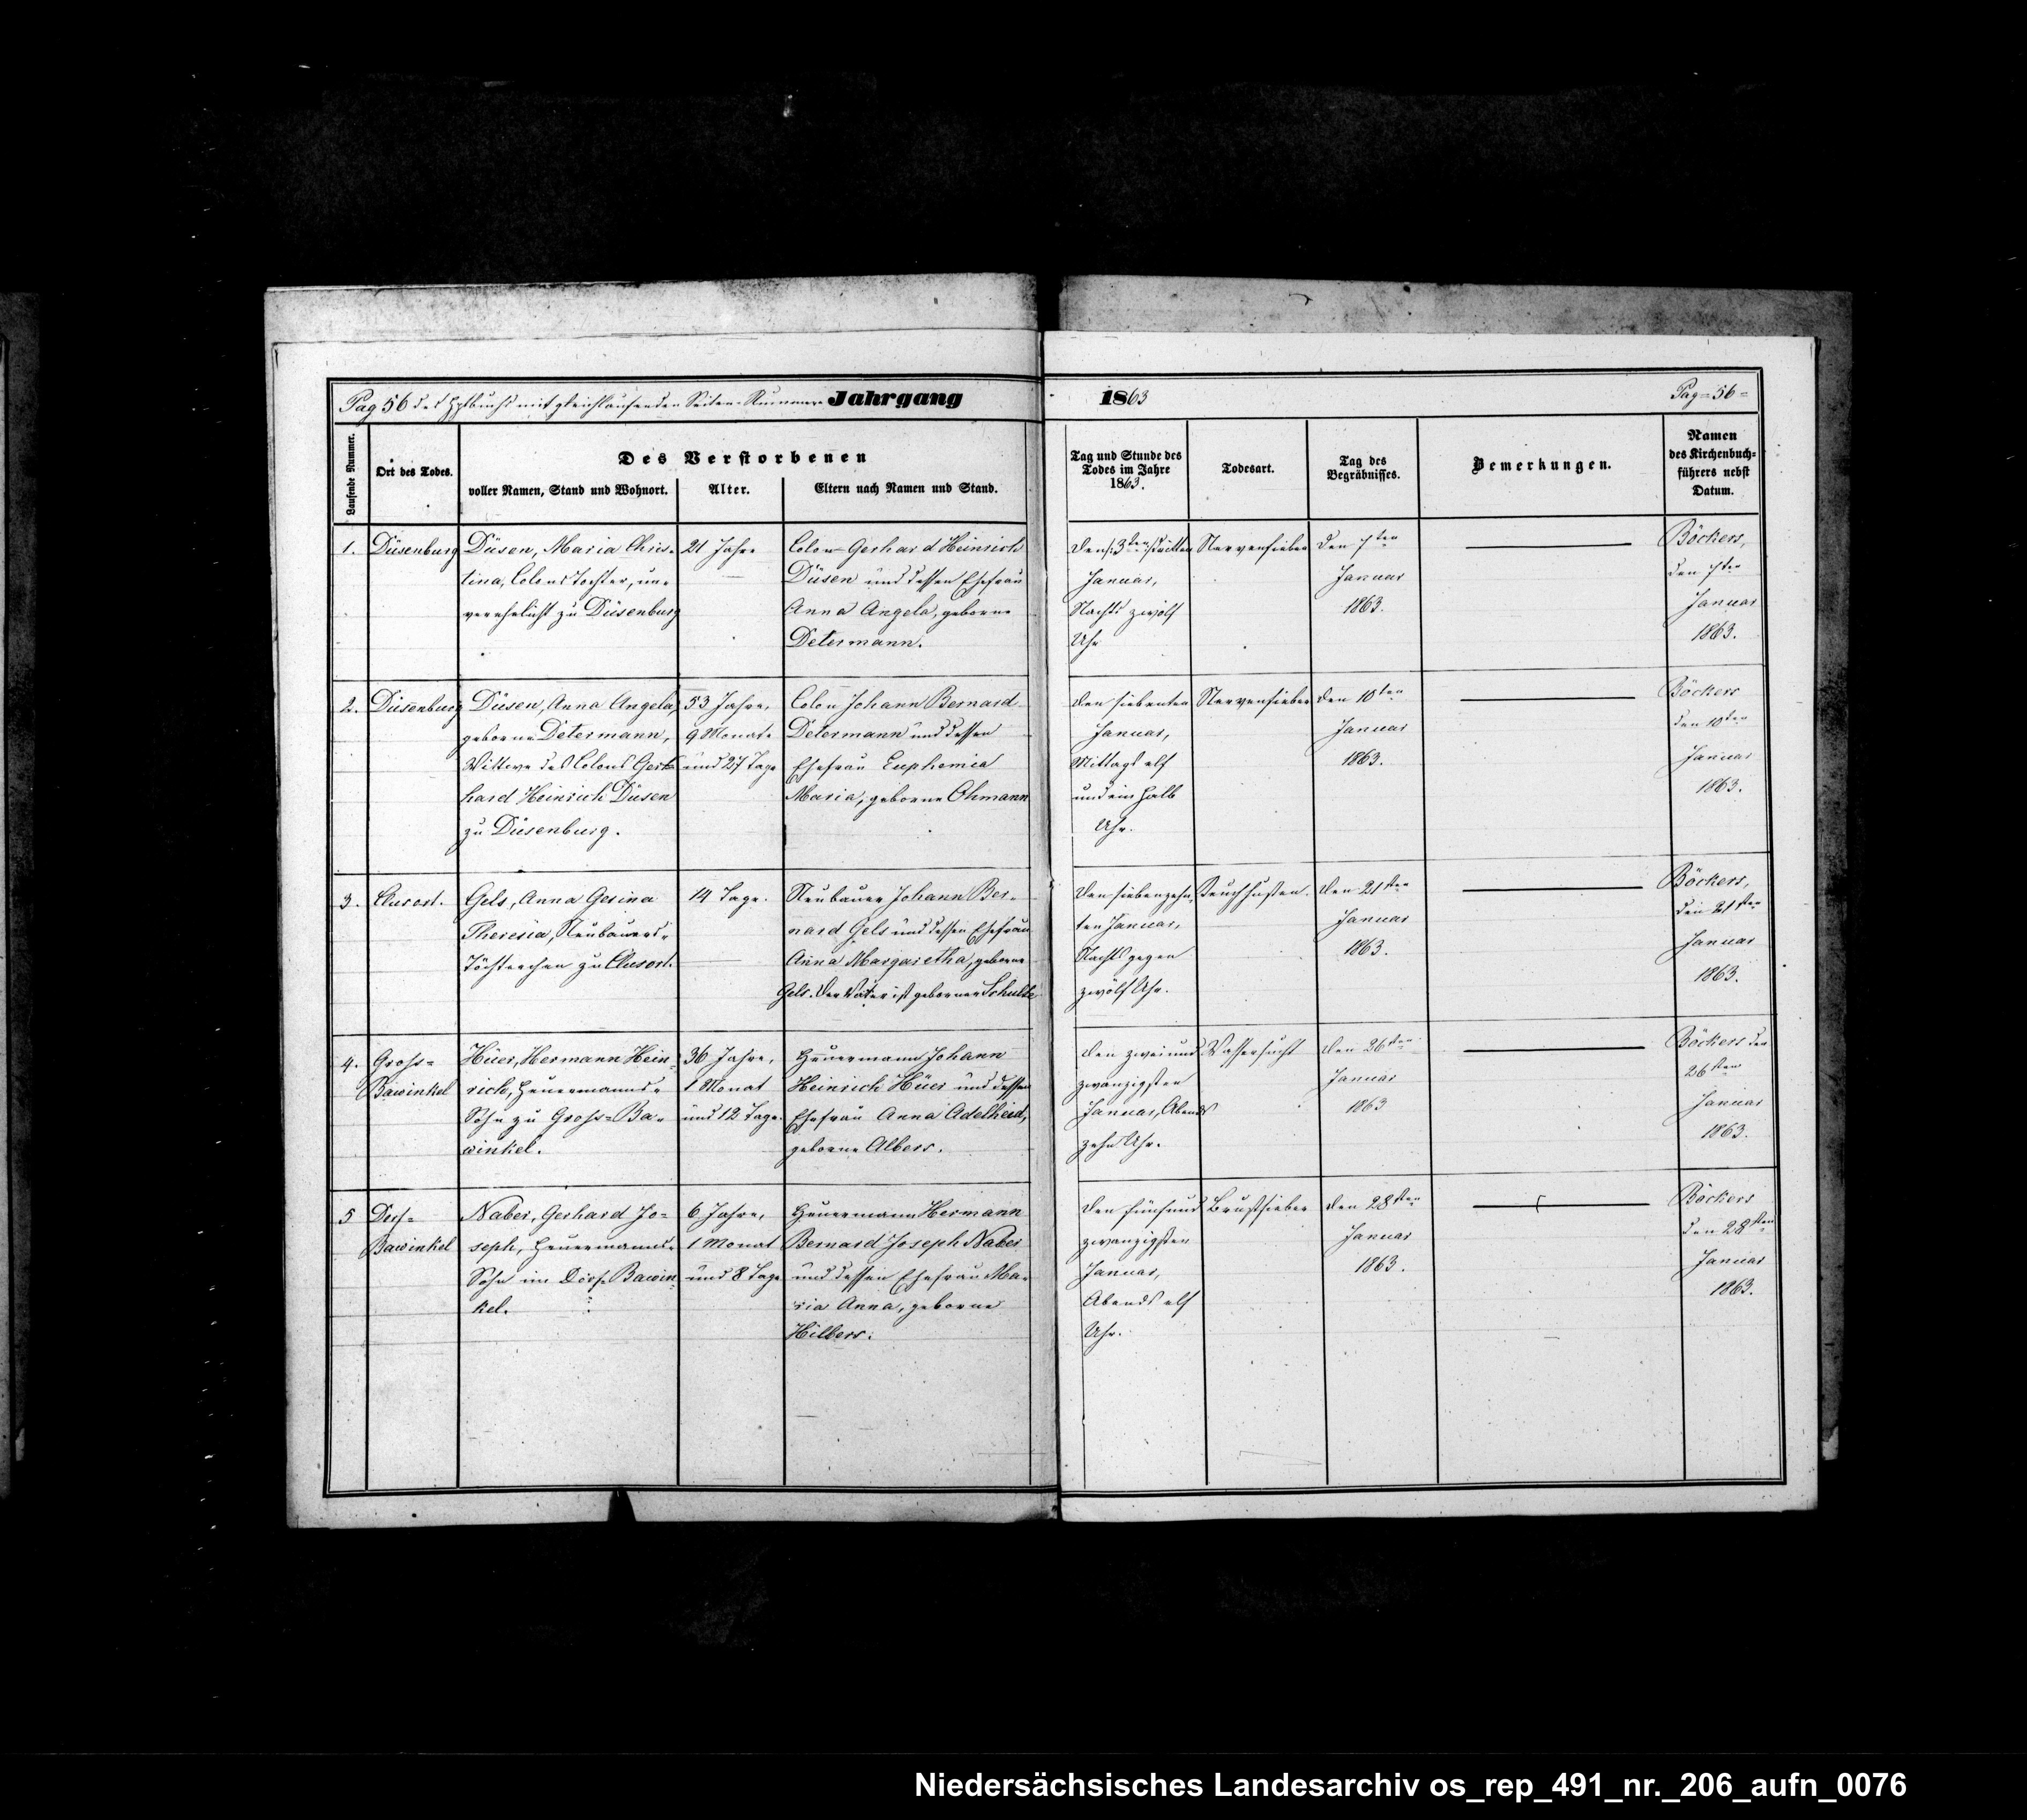 Pag 56 des Hptbuchs mit gleichlaufenden Seiten-Nummern Jahrgang 1863 Pag = 56 =
Laufende Nummer.
Ort des Todes.
Des Verstorbenen
voller Namen, Stand und Wohnort.
Alter.
Eltern nach Namen und Stand.
Tag und Stunde des
Todes im Jahre
1863.
Todesart.
Tag des
Begräbnisses.
Bemerkungen.
Namen
des Kirchenbuch=
führers nebst
Datum.
1.
Düsenburg
Düsen, Maria Chris-
tina, Colons Tochter, un-
verehelicht zu Düsenburg
21 Jahre
Colon Gerhard Heinrich
Düsen und dessen Ehefrau
Anna Angela, geborne
Determann.
Den /:3ten:/ dritten
Januar,
Nachts zwölf
Uhr
Nervenfieber
Den 7ten
Januar
1863.
Böckers,
den 7ten
Januar
1863.
2.
Düsenburg
Düsen, Anna Angela,
geborne Determann,
Wittwe des Colons Ger-
hard Heinrich Düsen
zu Düsenburg.
53 Jahre,
9 Monate
und 27 Tage
Colon Johann Bernard
Determann und dessen
Ehefrau Euphemia
Maria, geborne Ohmann
Den siebenten
Januar,
Mittags elf
und ein halb
Uhr.
Nervenfieber
Den 10ten
Januar
1863.
Böckers
den 10ten
Januar
1863.
3.
Clusort.
Gels, Anna Gesina
Theresia, Neubauers-
Töchterchen zu Clusort.
14 Tage.
Neubauer Johann Ber-
nard Gels und dessen Ehefrau
Anna Margaretha, geborne
Gels. Der Vater ist geborner Schulte
Den siebenzehn-
ten Januar,
Nachts gegen
zwölf Uhr.
Keuchhusten.
Den 21sten
Januar
1863.
Böckers,
den 21sten
Januar
1863.
4.
Gross=
Bawinkel
Hüer, Hermann Hein-
rich, Heuermanns-
Sohn zu Gross=Ba-
winkel.
36 Jahre,
1 Monat
und 12 Tage.
Heuermann Johann
Heinrich Hüer und dessen
Ehefrau Anna Adelheid,
geborne Albers.
Den zweiund
zwanzigsten
Januar, Abends
zehn Uhr.
Wassersucht
Den 26sten
Januar
1863
Böckers den
26sten
Januar
1863.
5
Dorf=
Bawinkel
Naber, Gerhard Jo=
seph, Heuermanns-
Sohn im Dorf=Bawin=
kel.
6 Jahre,
1 Monat
und 8 Tage
Heuermann Hermann
Bernard Joseph Naber
und dessen Ehefrau Ma-
ria Anna, geborne
Hilbers.
Den fünfund
zwanzigsten
Januar,
Abends elf
Uhr.
Brustfieber
Den 28sten
Januar
1863.
Böckers
den 28sten
Januar
1863.
Niedersächsisches Landesarchiv os_rep_491_nr._206_aufn_0076